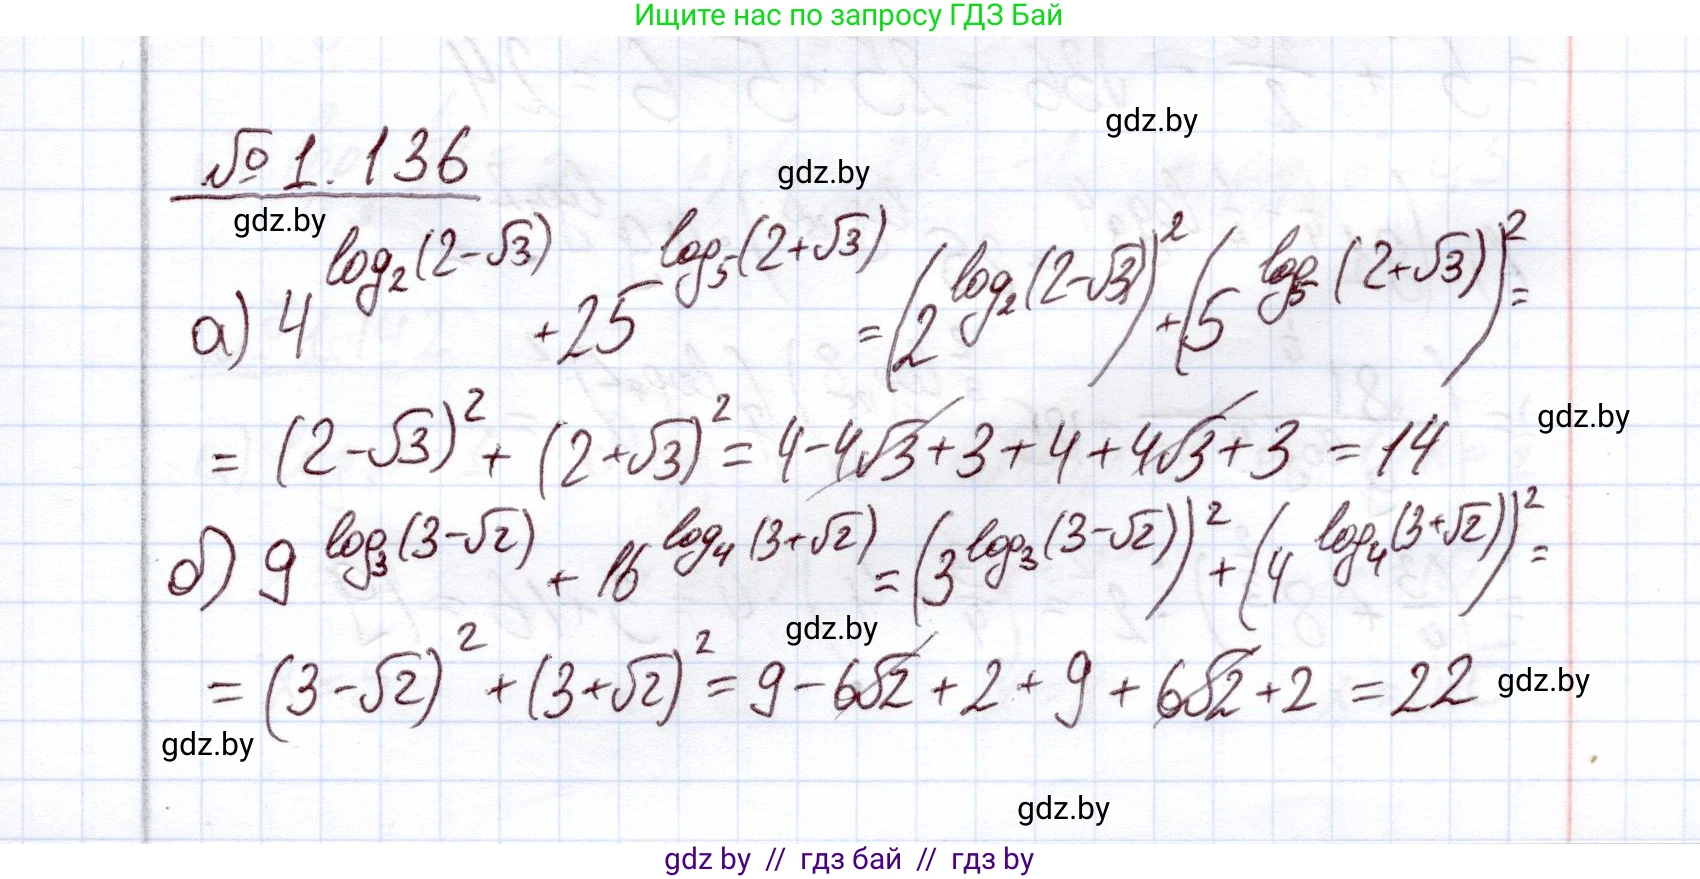 Ищите нас по запросу ГДЗ Бай
gdz.by
gdz.by
№ 1.136
gdz.by
а) 4^{log₂(2-√3)} + 25^{log₅(2+√3)} = (2^{log₂(2-√3)})² + (5^{log₅(2+√3)})² =
gdz.by
= (2-√3)² + (2+√3)² = 4-4√3+3+4+4√3+3 = 14
б) 9^{log₃(3-√2)} + 16^{log₄(3+√2)} = (3^{log₃(3-√2)})² + (4^{log₄(3+√2)})² =
gdz.by
= (3-√2)² + (3+√2)² = 9-6√2+2+9+6√2+2 = 22
gdz.by
gdz.by
gdz.by
gdz by // гдз бай // гдз by